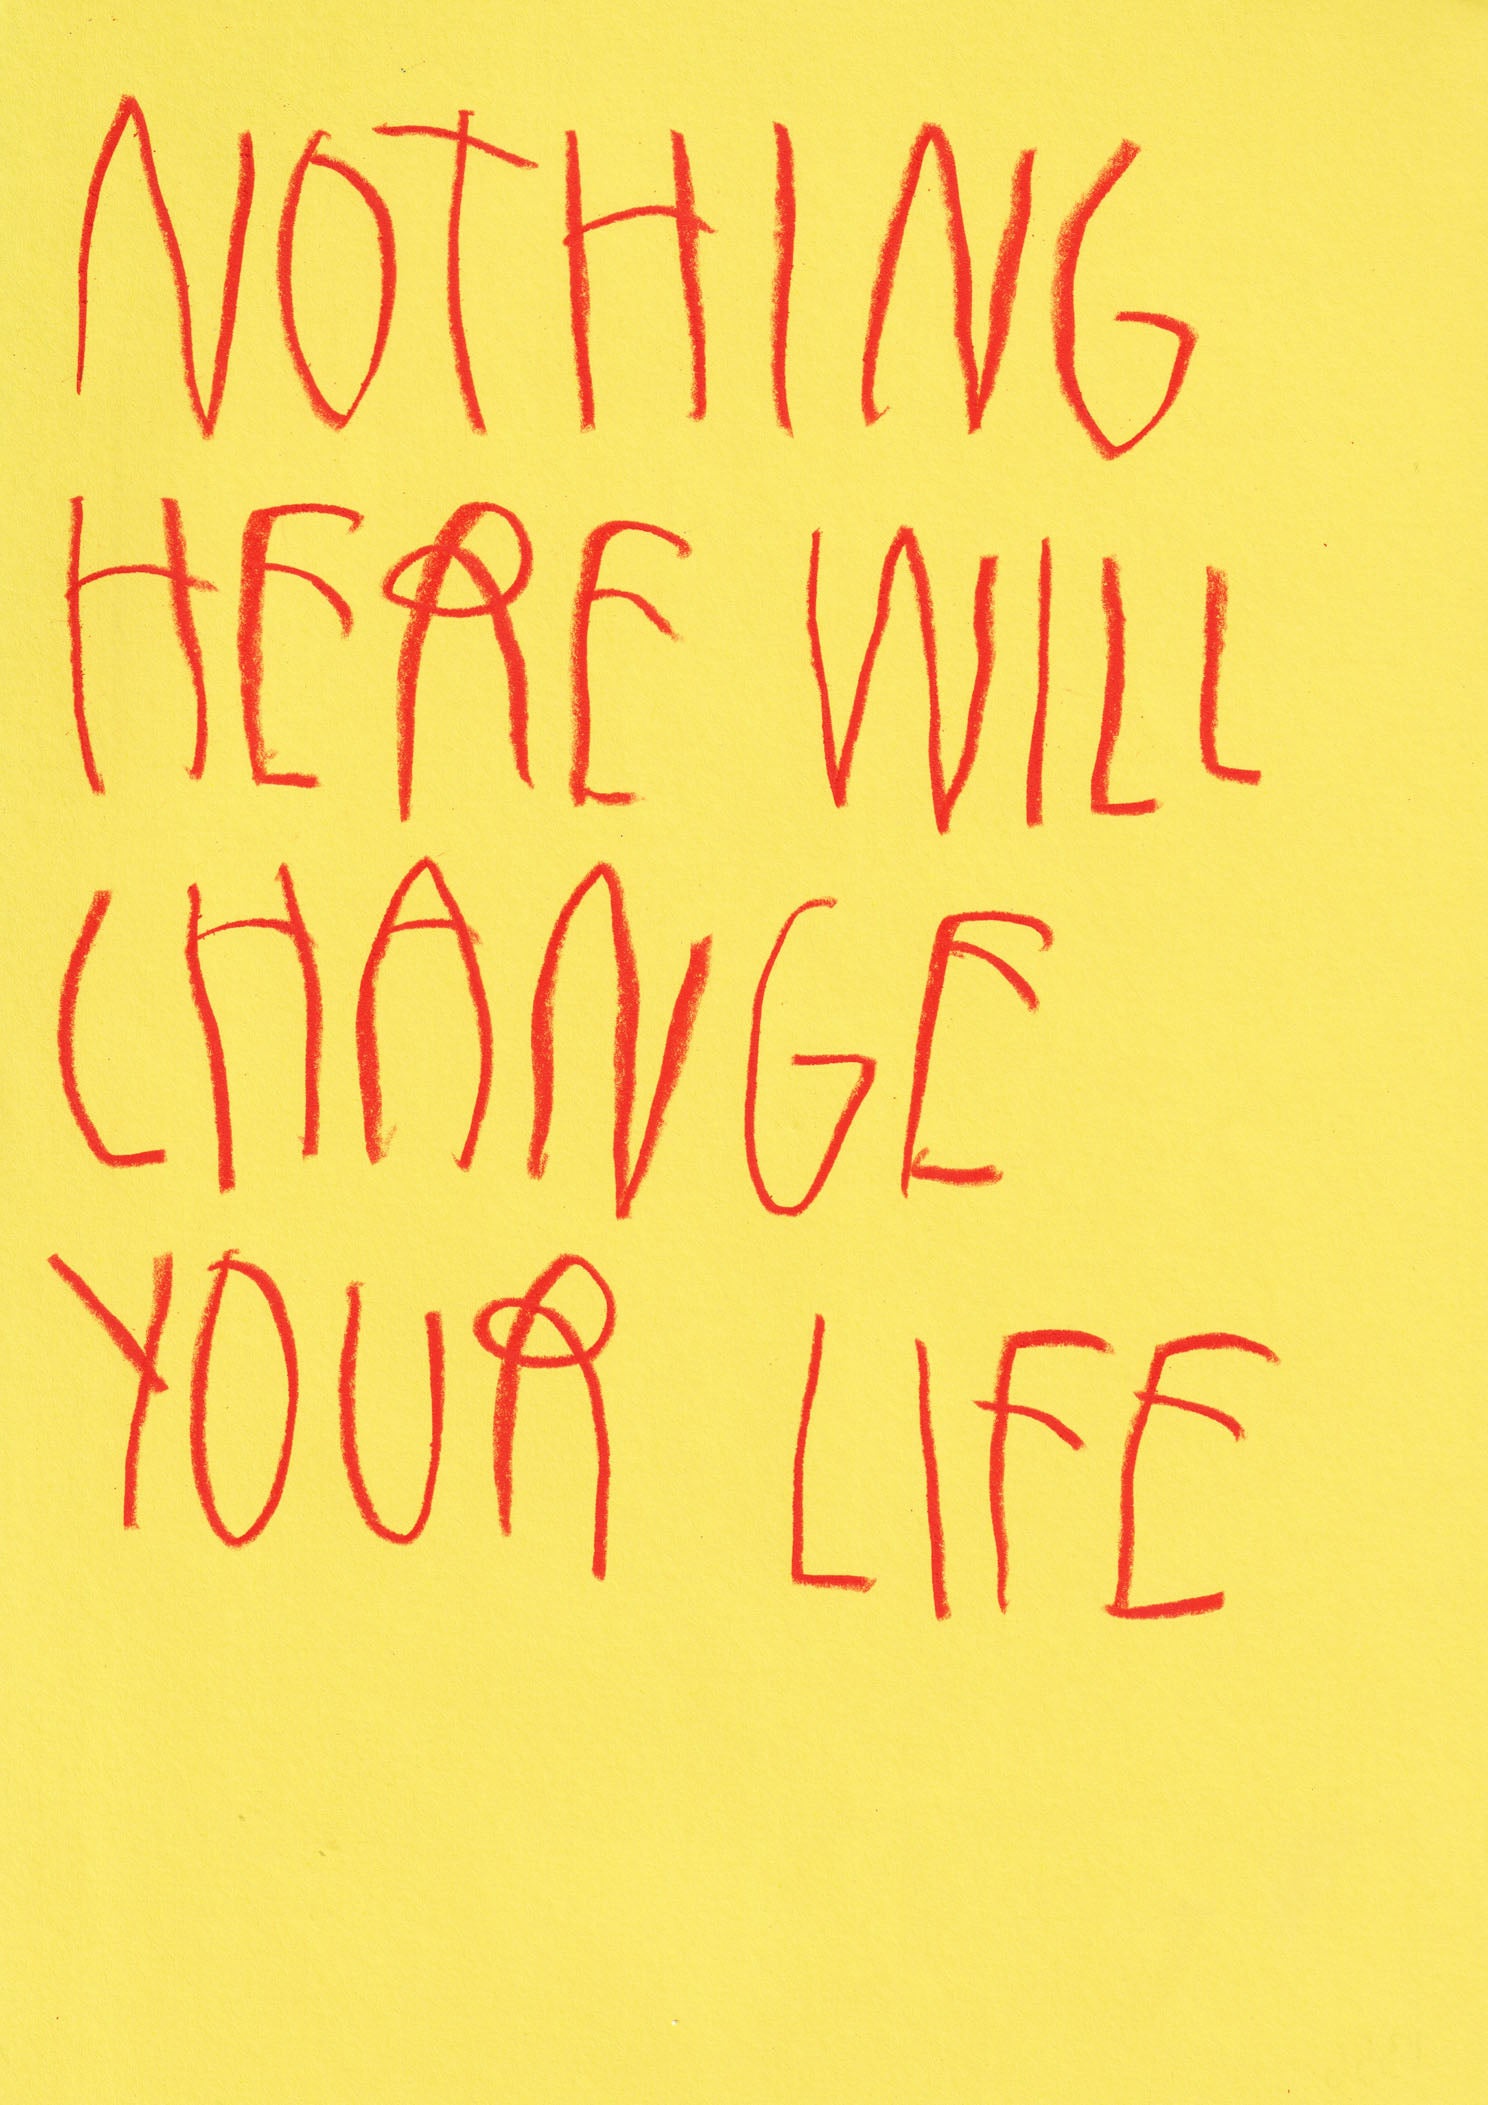 NOTHING
HERE WILL
CHANGE
YOUR LIFE